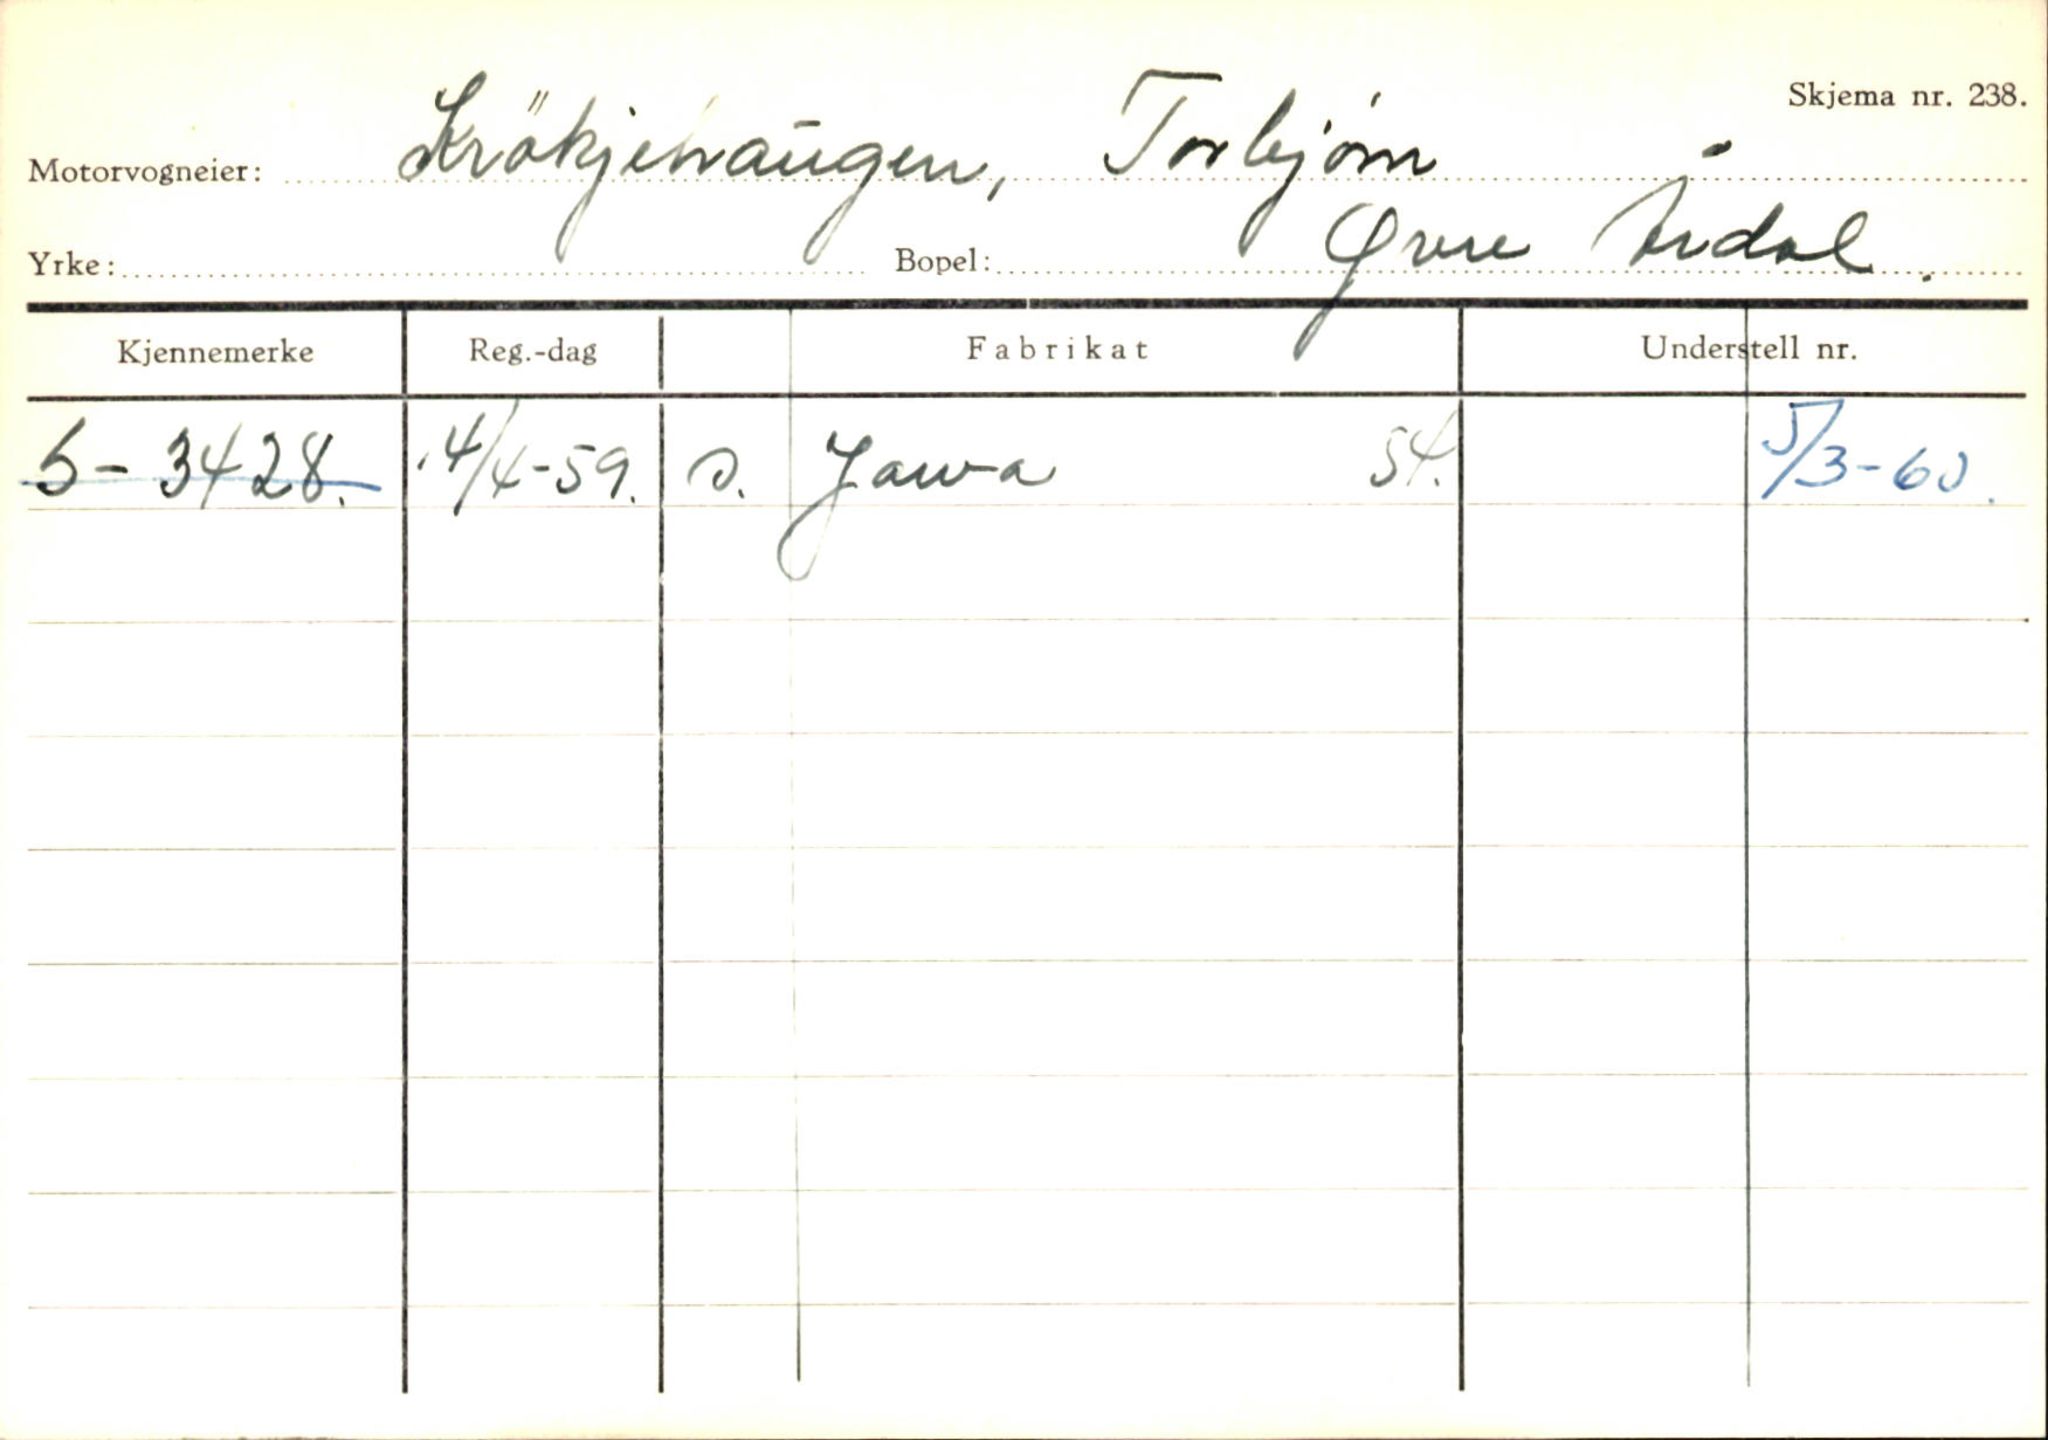 Skjema nr. 238.
Motorvogneier: Krökjehaugen, Torbjørn
Yrke: Bopel: Øvre Årdal.
Kjennemerke Reg.-dag Fabrikat Understell nr.
S- 3428. 4/4-59. D. Jawa 54. 5/3-60.